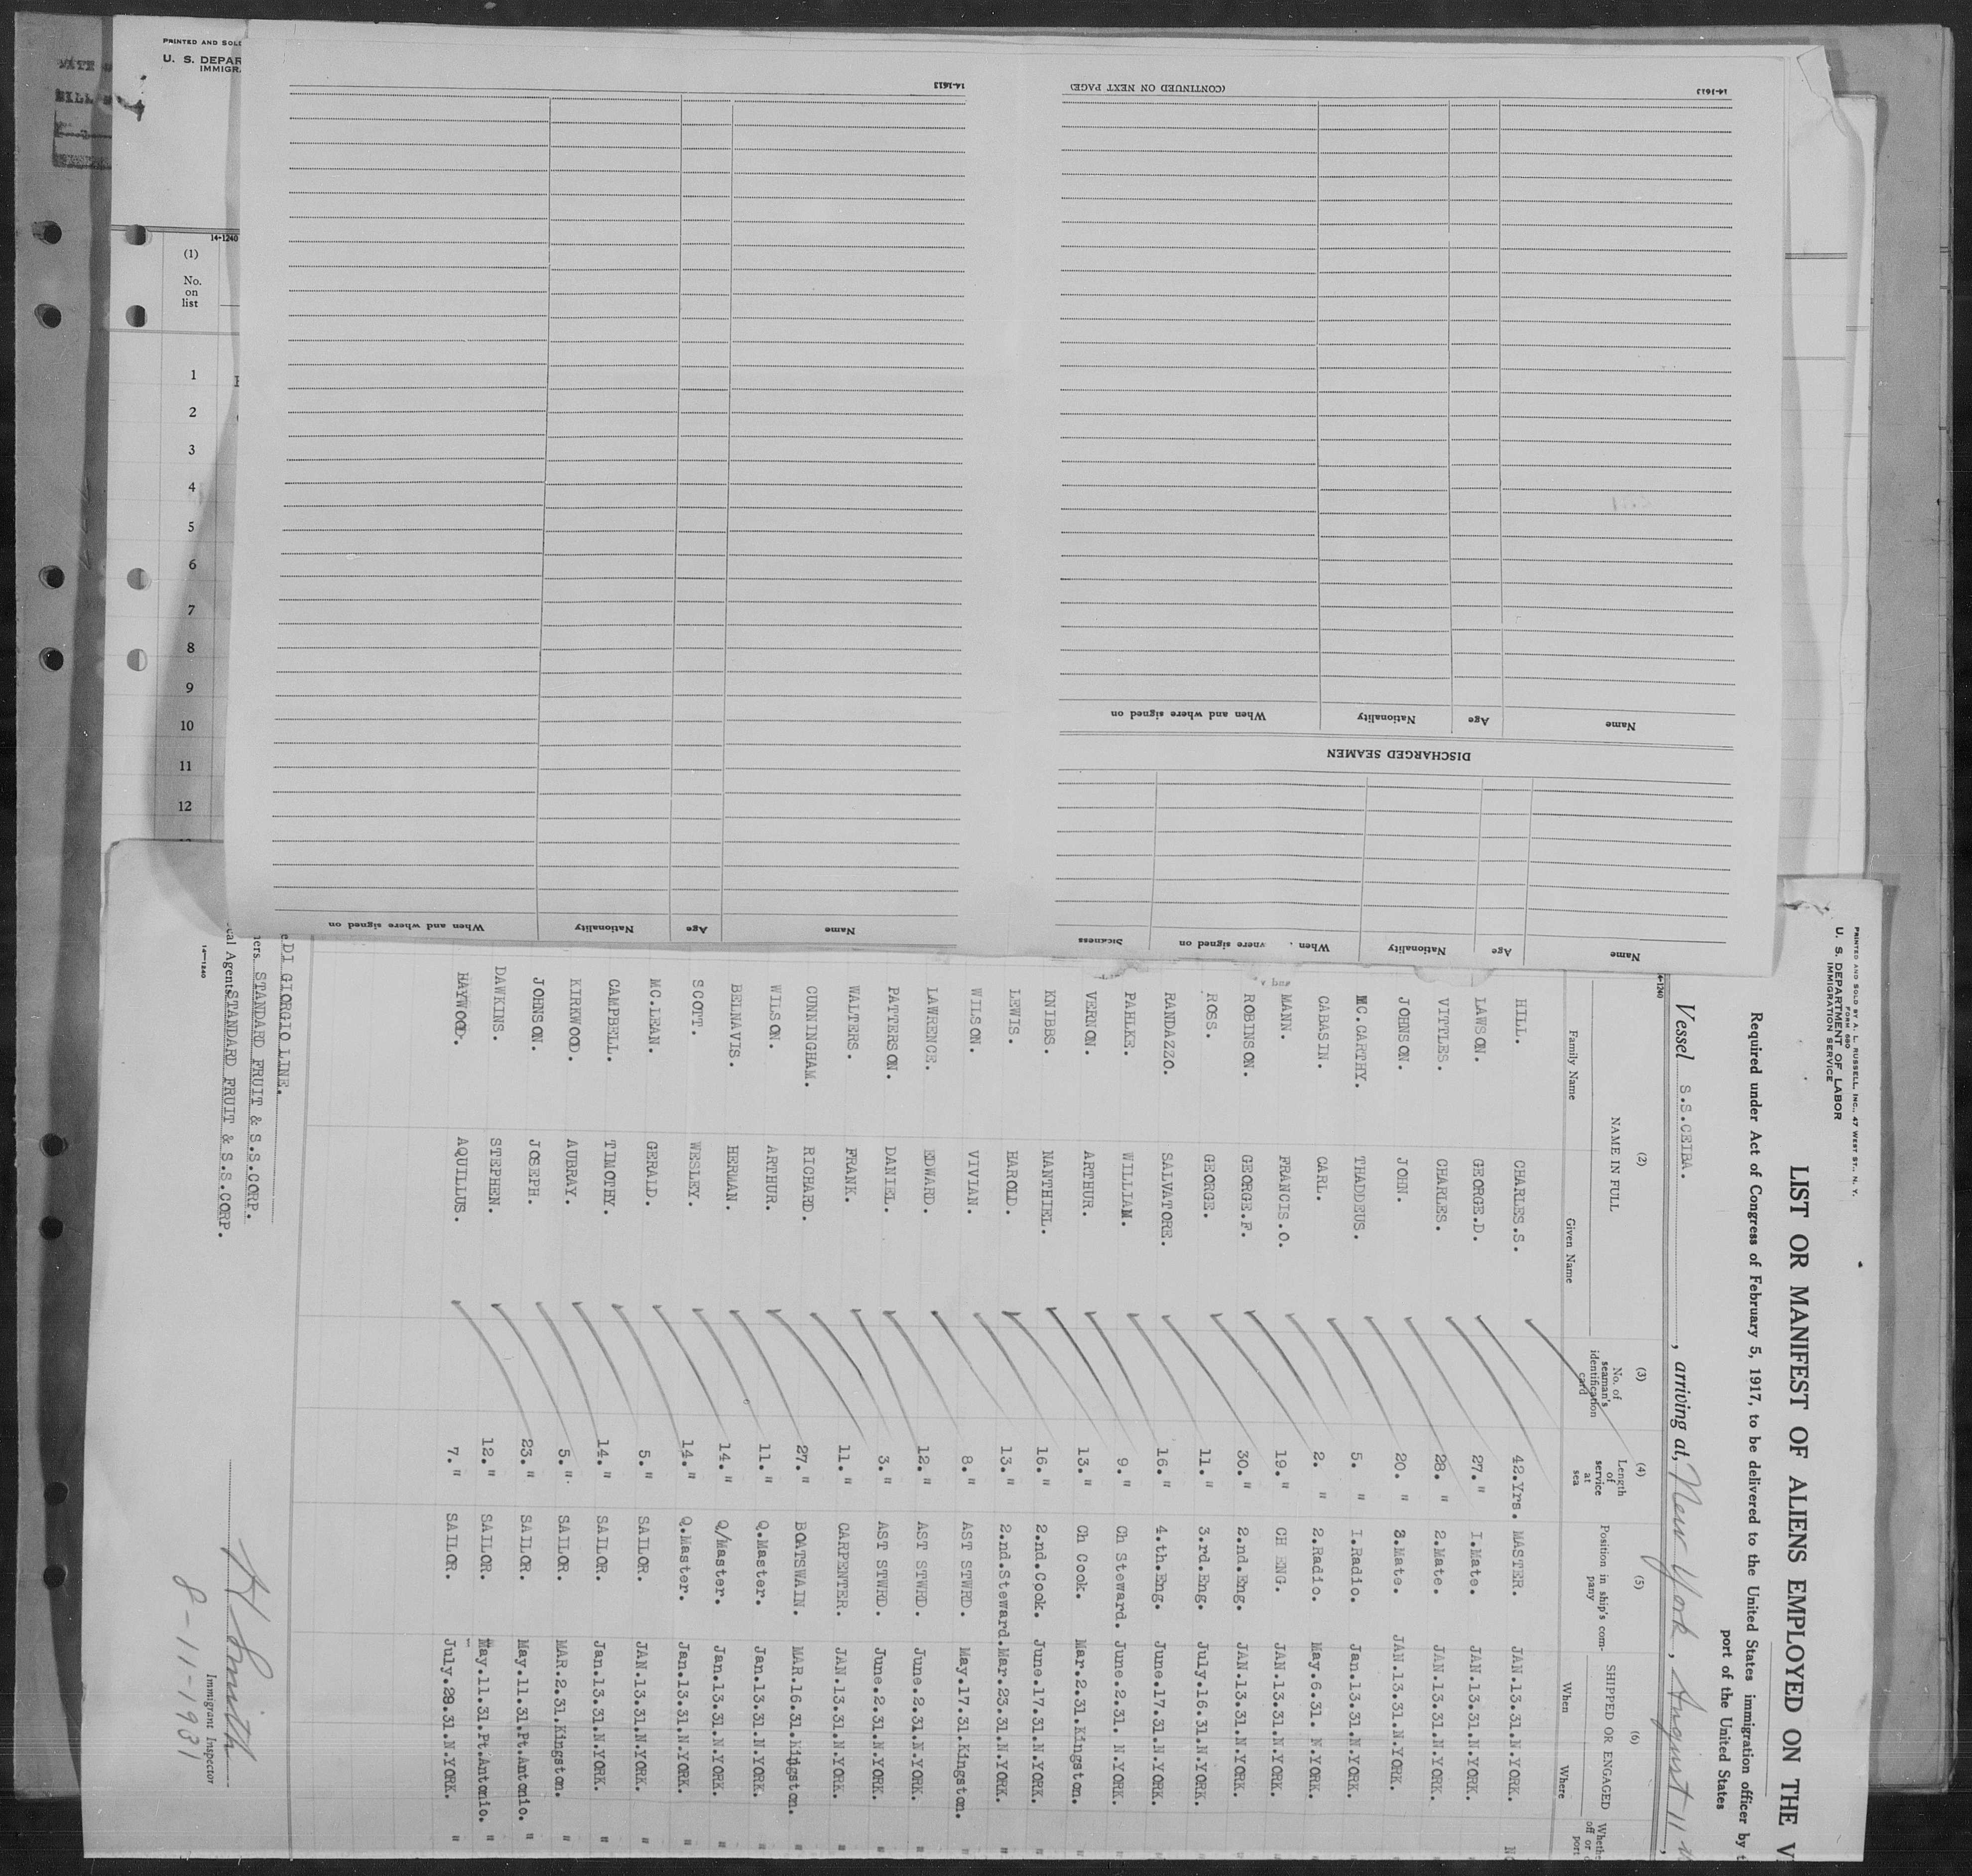 PRINTED AND SOLD
U. S. DEPAR
IMMIGR
14-1240
(1)
No.
on
list
1
2
3
4
5
6
7
8
9
10
11
12
14-1613
(CONTINUED ON NEXT PAGE)
14-1613
When and where signed on
Nationality
Age
Name
DISCHARGED SEAMEN
Name
Age
Nationality
When and where signed on
Name
Age
Nationality
When
where signed on
Sickness
PRINTED AND SOLD BY A. L. RUSSELL, INC., 47 WEST ST., N. Y.
FORM 680
U. S. DEPARTMENT OF LABOR
IMMIGRATION SERVICE
LIST OR MANIFEST OF ALIENS EMPLOYED ON THE V
Required under Act of Congress of February 5, 1917, to be delivered to the United States immigration officer by t
port of the United States
Vessel S.S.CEIBA. , arriving at New York , August 11
(2) (3) (4) (5) (6)
NAME IN FULL
Family Name Given Name
No. of seaman's identification card
Length of service at sea
Position in ship's company
SHIPPED OR ENGAGED
When Where
HILL. CHARLES.S. 42.Yrs. MASTER. JAN.13.31.N.YORK.
LAWSON. GEORGE.D. 27. " I.Mate. JAN.13.31.N.YORK. "
VITTLES. CHARLES. 28. " 2.Mate. JAN.13.31.N.YORK. "
JOHNSON. JOHN. 20. " 3.Mate. JAN.13.31.N.YORK. "
MC.CARTHY. THADDEUS. 5. " I.Radio. Jan.13.31.N.YORK. "
CABASIN. CARL. 2. " 2.Radio. May.6.31. N.YORK. "
MANN. FRANCIS.O. 19. " CH ENG. JAN.13.31.N.YORK. "
ROBINSON. GEORGE.F. 30. " 2.nd.Eng. JAN.13.31.N.YORK. "
ROSS. GEORGE. 11. " 3.rd.Eng. July.16.31.N.YORK. "
RANDAZZO. SALVATORE. 16. " 4.th.Eng. June.17.31.N.YORK. "
PAHLKE. WILLIAM. 9. " Ch Steward. June.2.31. N.YORK. "
VERNON. ARTHUR. 13. " Ch Cook. Mar.2.31.Kingston. "
KNIBBS. NANTHIEL. 16. " 2.nd.Cook. June.17.31.N.YORK. "
LEWIS. HAROLD. 13. " 2.nd.Steward.Mar.23.31.N.YORK. "
WILSON. VIVIAN. 8. " AST STWRD. May.17.31.Kingston. "
LAWRENCE. EDWARD. 12. " AST STWRD. June.2.31.N.YORK. "
PATTERSON. DANIEL. 3. " AST STWRD. June.2.31.N.YORK. "
WALTERS. FRANK. 11. " CARPENTER. JAN.13.31.N.YORK. "
CUNNINGHAM. RICHARD. 27. " BOATSWAIN. MAR.16.31.Kingston. "
WILSON. ARTHUR. 11. " Q.Master. Jan.13.31.N.YORK. "
BELNAVIS. HERMAN. 14. " Q/Master. Jan.13.31.N.YORK. "
SCOTT. WESLEY. 14. " Q.Master. Jan.13.31.N.YORK. "
MC.LEAN. GERALD. 5. " SAILOR. JAN.13.31.N.YORK. "
CAMPBELL. TIMOTHY. 14. " SAILOR. Jan.13.31.N.YORK. "
KIRKWOOD. AUBRAY. 5. " SAILOR. MAR.2.31.Kingston. "
JOHNSON. JOSEPH. 23. " SAILOR. May.11.31.Pt.Antonio. "
DAWKINS. STEPHEN. 12. " SAILOR. May.11.31.Pt.Antonio. "
HAYWOOD. AQUILLUS. 7. " SAILOR. July.29.31.N.YORK. "
DI GIORGIO LINE.
ners STANDARD FRUIT & S.S.CORP.
cal Agents STANDARD FRUIT & S.S.CORP.
14-1240
H Smith
Immigrant Inspector
8-11-1931